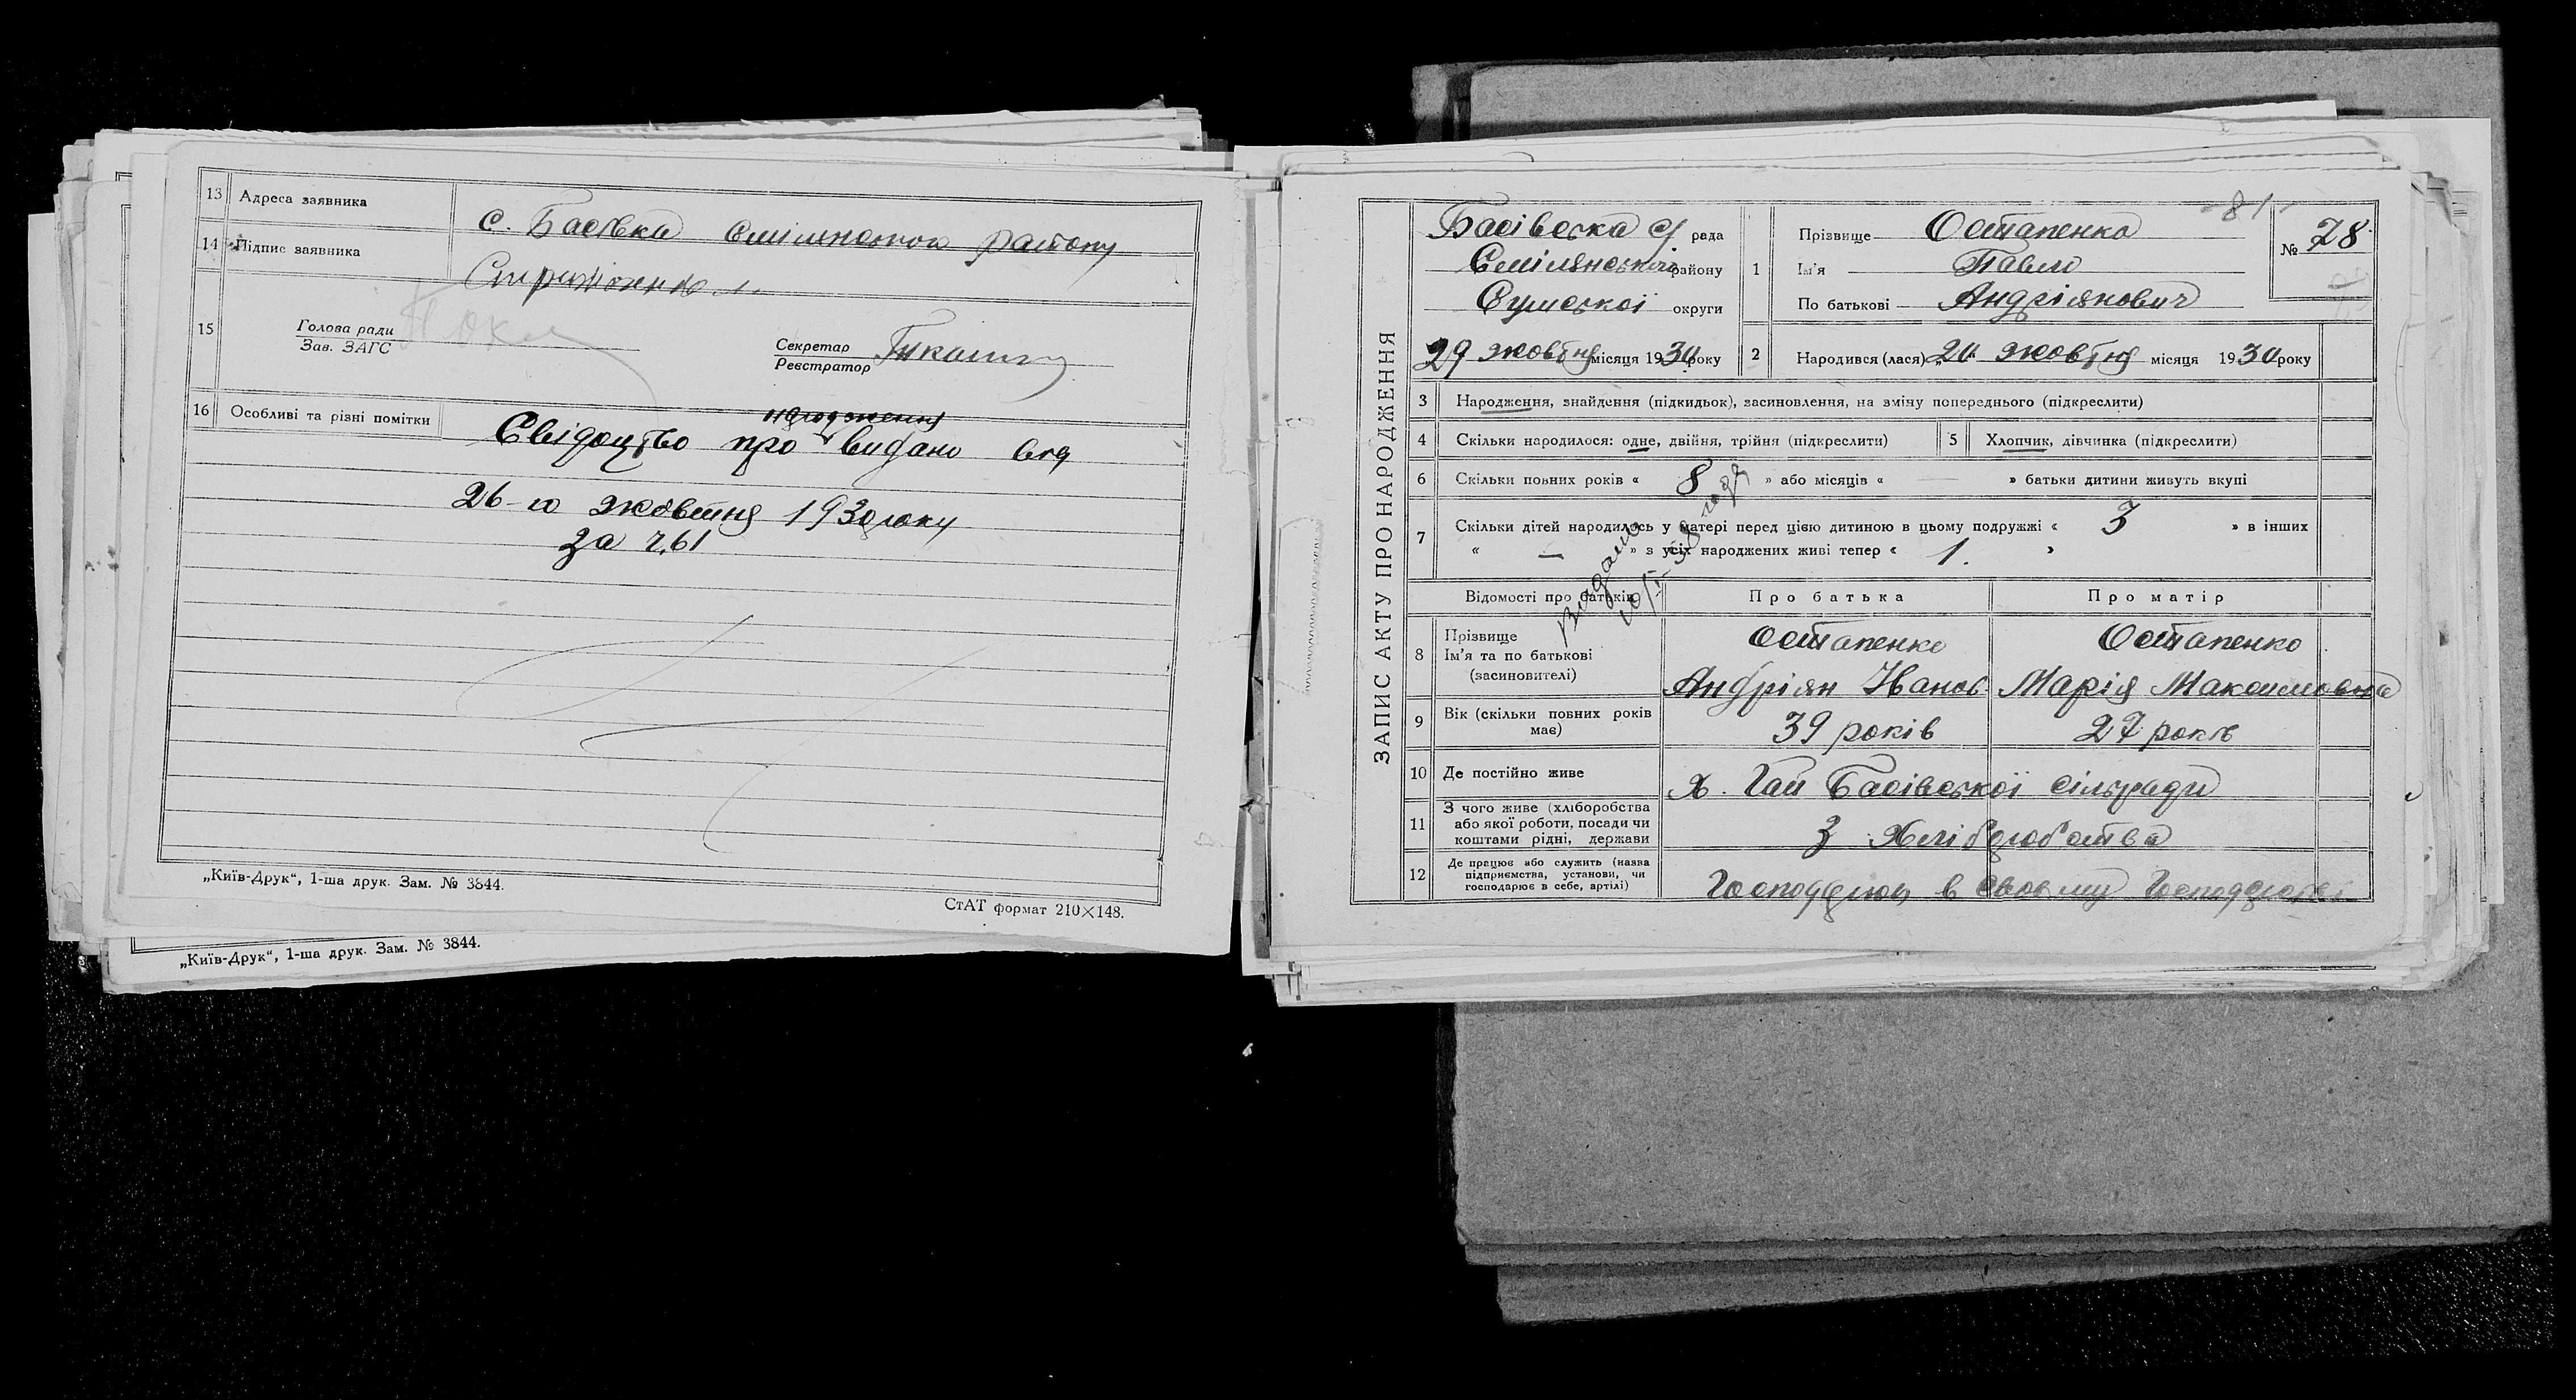 13 Адреса заявника
с. Басівка Смілянського району
14 Підпис заявника
15 Голова ради
Зав. ЗАГС
Секретар
Реєстратор
16 Особливі та різні помітки
народження
Свідоцтво про видано від
26-го жовтня 1930 року
За ч. 61
„Київ-Друк“, 1-ша друк. Зам. № 3844.
СтАТ формат 210×148.
„Київ-Друк“, 1-ша друк. Зам. № 3844.
ЗАПИС АКТУ ПРО НАРОДЖЕННЯ
Басівська с/рада
Смілянського району
Сумської округи
29 жовтня місяця 1930 року
-81-
№ 78
1 Прізвище Остапенко
Ім'я Павло
По батькові Андріянович
2 Народився (лася) „20 жовтня місяця 1930 року
3 Народження, знайдення (підкидьок), засиновлення, на зміну попереднього (підкреслити)
4 Скільки народилося: одне, двійня, трійня (підкреслити) 5 Хлопчик, дівчинка (підкреслити)
6 Скільки повних років « 8 » або місяців « — » батьки дитини живуть вкупі
7 Скільки дітей народилось у матері перед цією дитиною в цьому подружжі « 3 » в інших
« — » з усіх народжених живі тепер « 1. »
Відомості про батьків Про батька Про матір
8 Прізвище
Ім'я та по батькові
(засиновителі)
Остапенко Остапенко
Андріян Іванов Марія Максимовна
9 Вік (скільки повних років має) 39 років 27 років
10 Де постійно живе х. Гай Басівської сільради
11 З чого живе (хліборобства
або якої роботи, посади чи
коштами рідні, держави
З хліборобства
12 Де працює або служить (назва
підприємства, установи, чи
господарює в себе, артілі)
Господарюю в своєму господарстві